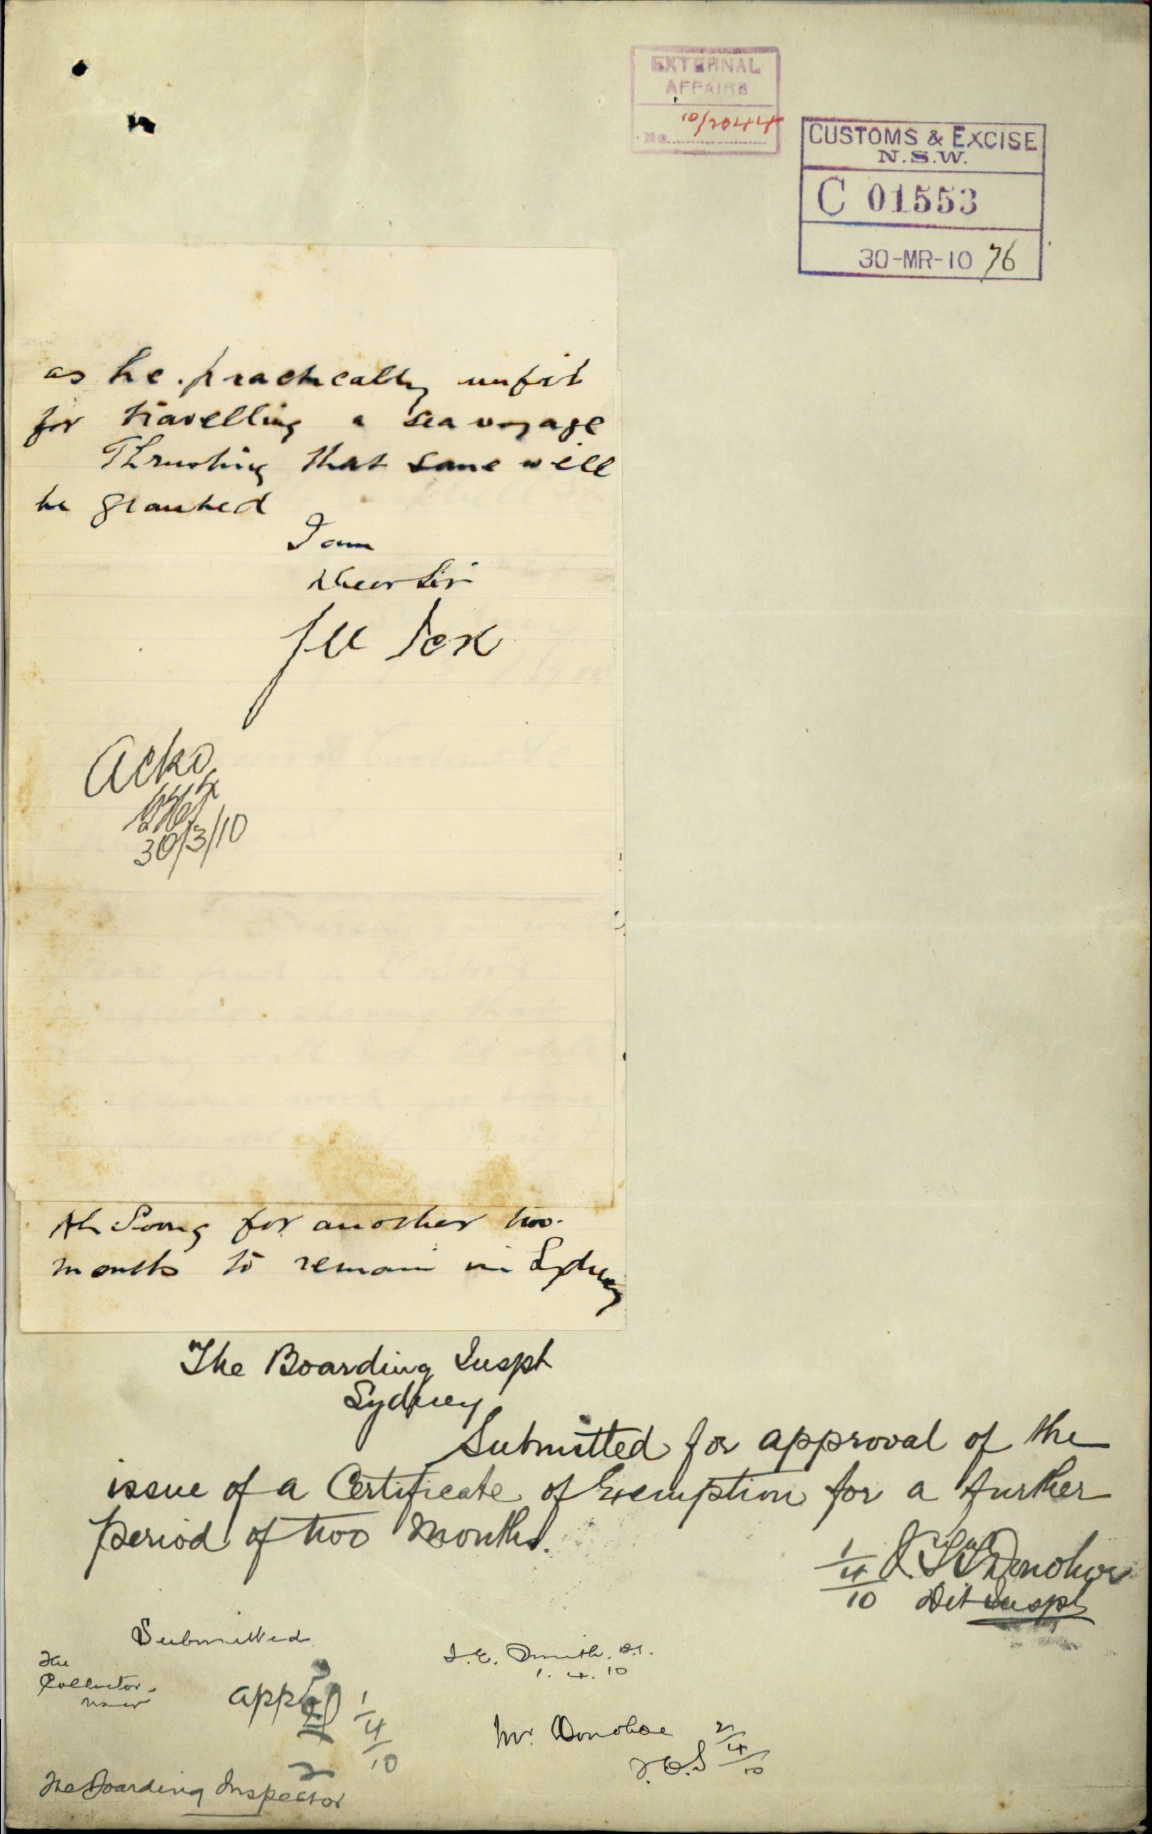 EXTERNAL
AFFAIRS
No. 10/2044
CUSTOMS & EXCISE
N.S.W.
C 01553
30-MR-10 76
as he practically unfit
for travelling a sea voyage
Thrusting that same will
be granted
I am
Dear Sir
Ackd
30/3/10
Ah Soong for another two
months to remain in Sydney
The Boarding Inspt
Sydney
Submitted for approval of the
issue of a Certificate of Exemption for a further
period of two months.
1/4/10 J.T.T. Donohoe
Det Inspt
Submitted
The
Collector
N.S.W.
J.E. Smith. D.I.
1.4.10
appd 1/4/10
Mr. Donohoe
J.E.S 2/4/10
The Boarding Inspector